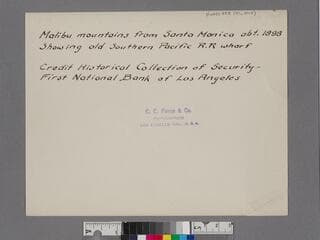 Malibu mountains from Santa Monica abt. 1898
Showing old Southern Pacific R.R wharf
Credit Historical Collection of Security-
First National Bank of Los Angeles
C. C. Pierce & Co.